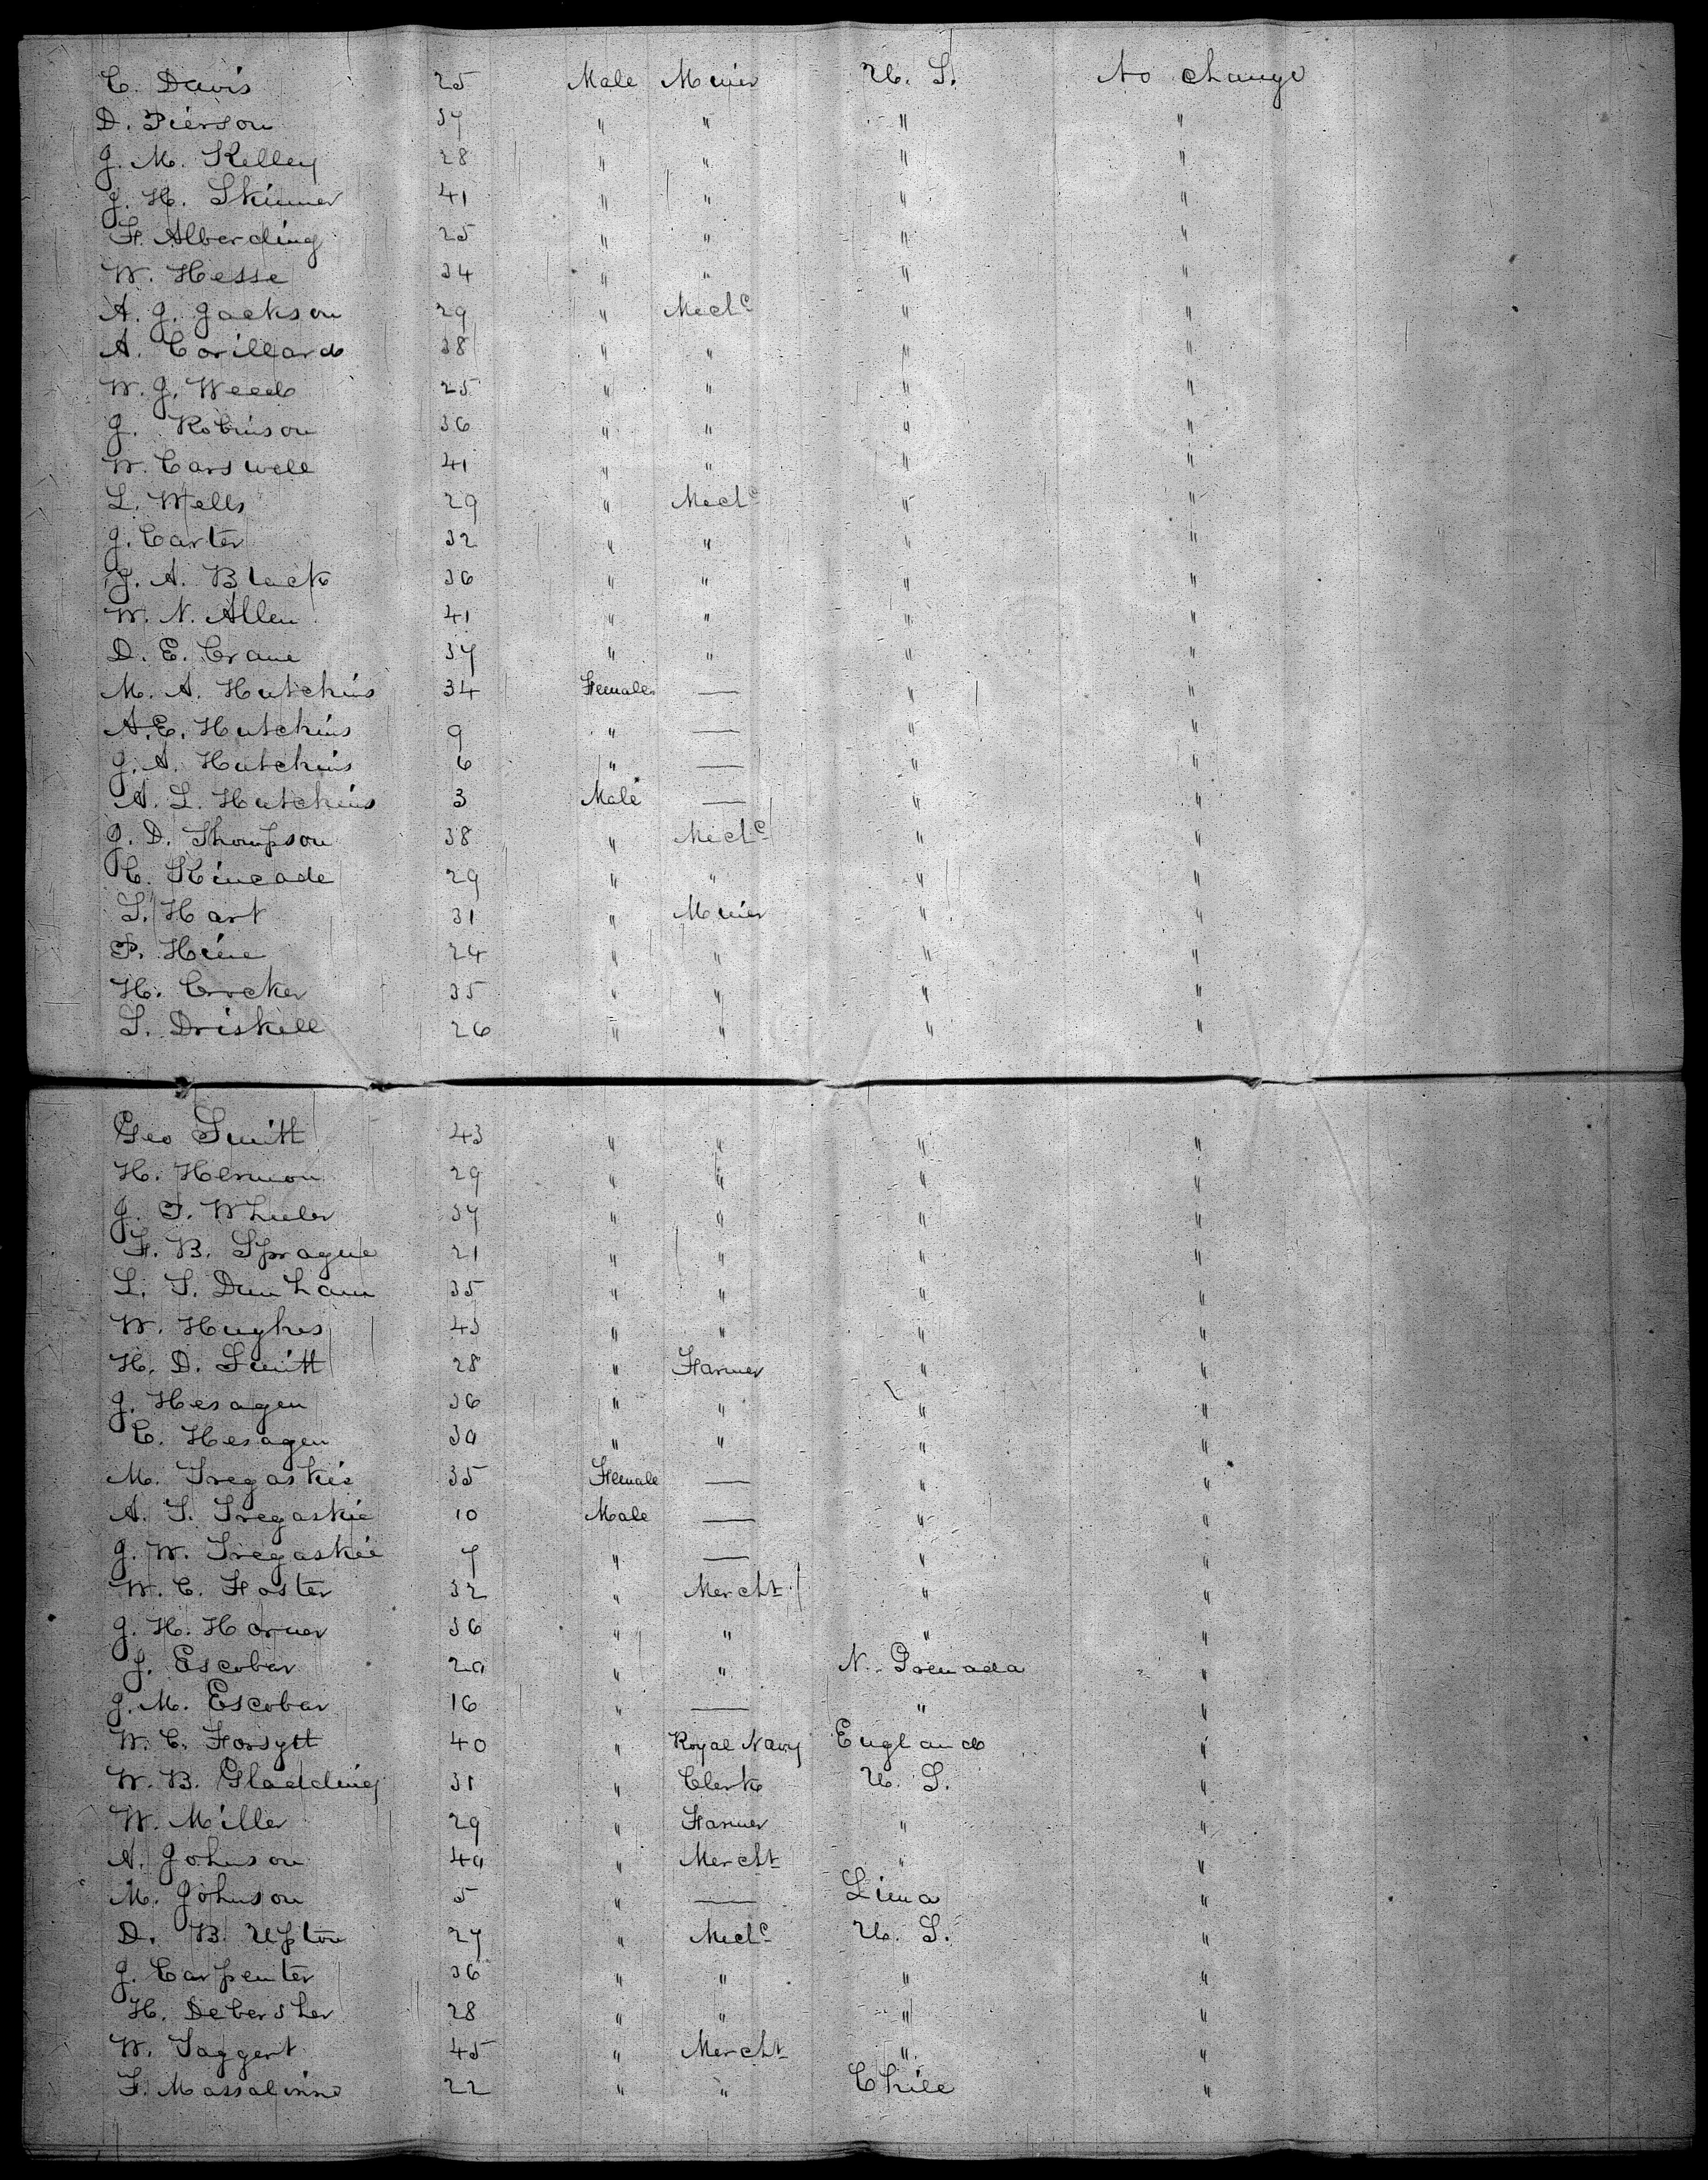 C. Davis 25 Male Miner U. S. No change
D. Pierson 37 " " " "
J. M. Kelley 28 " " " "
J. H. Skinner 41 " " " "
F. Alberding 25 " " " "
W. Hesse 34 " " " "
A. J. Jackson 29 " Mechc " "
A. Corillard 38 " " " "
W. J. Weed 25 " " " "
J. Robinson 36 " " " "
W. Carswell 41 " " " "
L. Wells 29 " Mechc " "
J. Carter 32 " " " "
J. A. Black 36 " " " "
W. N. Allen 41 " " " "
D. E. Crane 37 " " " "
M. A. Hutchins 34 Female — " "
A. E. Hutchins 9 " — " "
J. A. Hutchins 6 " — " "
A. L. Hutchins 3 Male — " "
J. D. Thompson 38 " Mechc " "
C. Kincade 29 " " " "
S. Hart 31 " Miner " "
P. Hine 24 " " " "
H. Crocker 35 " " " "
S. Driskell 26 " " " "
Geo Smith 43 " " " "
H. Hermon 29 " " " "
J. T. Wheeler 37 " " " "
F. B. Sprague 21 " " " "
L. S. Dunham 35 " " " "
W. Hughes 43 " " " "
H. D. Smith 28 " Farmer " "
J. Hesagen 36 " " " "
C. Hesagen 30 " " " "
M. Tregaskie 35 Female — " "
A. T. Tregaskie 10 Male — " "
J. W. Tregaskie 7 " — " "
W. C. Foster 32 " Mercht " "
J. H. Horner 36 " " " "
J. Escobar 20 " " N. Grenada "
J. M. Escobar 16 " — " "
W. C. Forsyth 40 " Royal Navy England "
W. B. Gladding 31 " Clerk U. S. "
W. Miller 29 " Farmer " "
A. Johnson 40 " Mercht " "
M. Johnson 5 " — Lima "
D. B. Upton 27 " Mechc U. S. "
J. Carpenter 36 " " " "
H. Debersher 28 " " " "
W. Taggert 45 " Mercht " "
F. Massalinino 22 " " Chile "